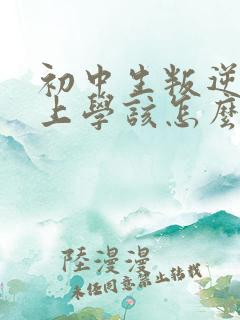 初中生叛逆
上學該怎麽
陸漫漫
未經同意禁止轉載